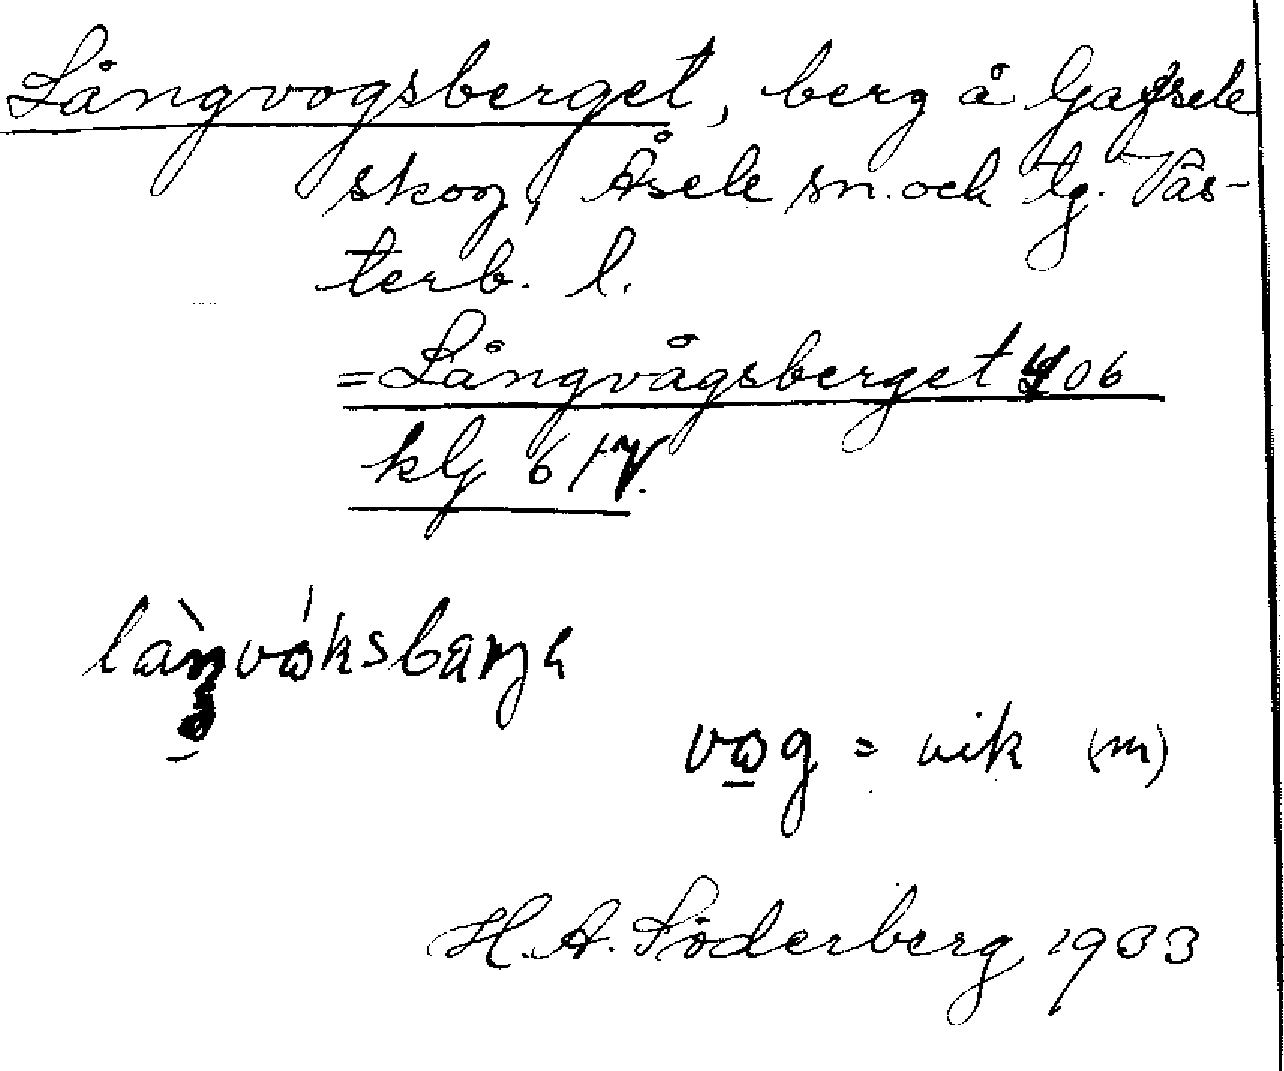 Långvogsberget, berg å Gafsele
skog, Åsele sn. och tg. Väs-
terb. l.
= Långvågsberget 406
klg 617.
vog = vik (m)
H. A. Söderberg 1933